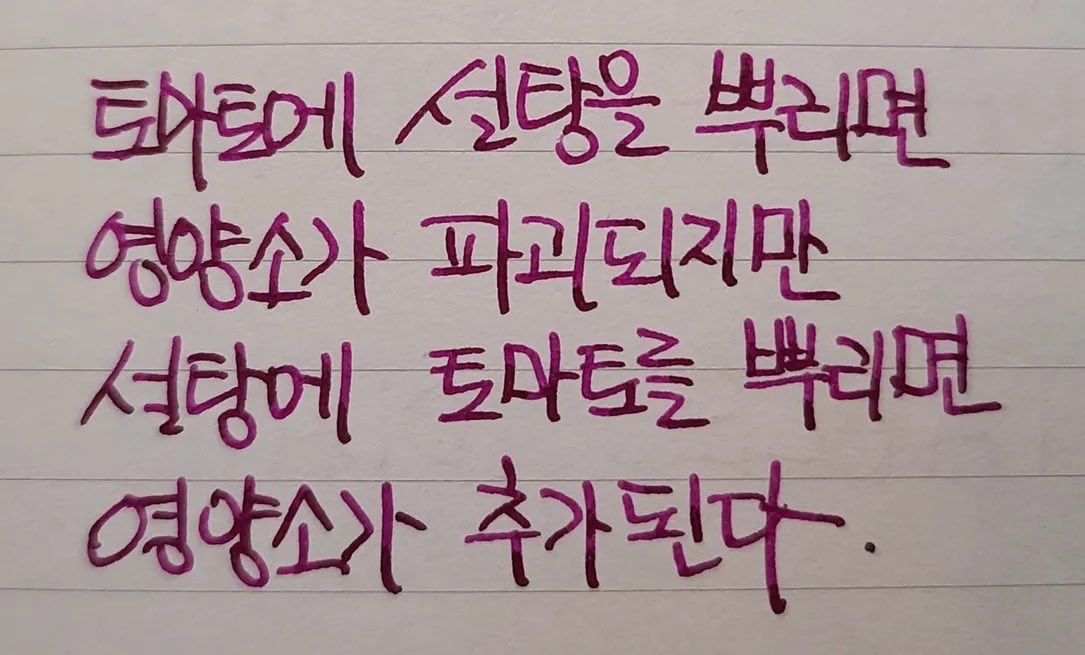 토마토에 설탕을 뿌리면
영양소가 파괴되지만
설탕에 토마토를 뿌리면
영양소가 추가된다.